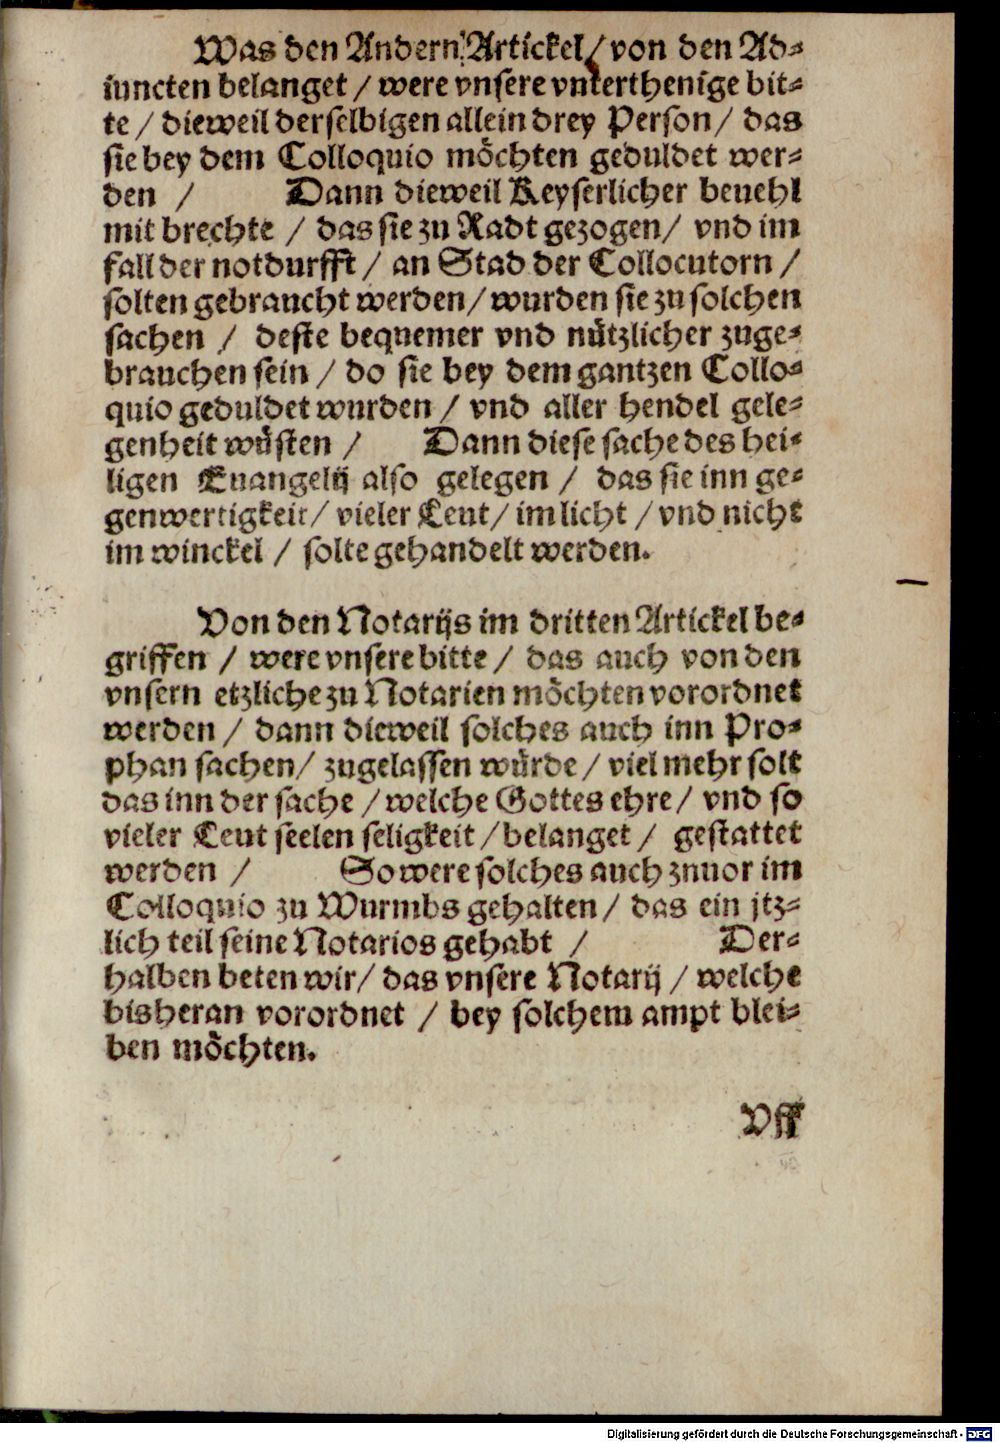 Was den Andern Artickel / von den Ad-
iuncten belanget / were vnsere vnterthenige bit-
te / dieweil derselbigen allein drey Person / das
sie bey dem Colloquio möchten geduldet wer-
den / Dann dieweil Keyserlicher beuehl
mit brechte / das sie zu Radt gezogen / vnd im
fall der notdurfft / an Stad der Collocutorn /
solten gebraucht werden / wurden sie zu solchen
sachen / deste bequemer vnd nützlicher zuge-
brauchen sein / do sie bey dem gantzen Collo-
quio geduldet wurden / vnd aller hendel gele-
genheit wüsten / Dann diese sache des hei-
ligen Euangelij also gelegen / das sie inn ge-
genwertigkeit / vieler Leut / im licht / vnd nicht
im winckel / solte gehandelt werden.
Von den Notarijs im dritten Artickel be-
griffen / were vnsere bitte / das auch von den
vnsern etzliche zu Notarien möchten vorordnet
werden / dann dieweil solches auch inn Pro-
phan sachen / zugelassen würde / viel mehr solt
das inn der sache / welche Gottes ehre / vnd so
vieler Leut seelen seligkeit / belanget / gestattet
werden / So were solches auch znuor im
Colloquio zu Wurmbs gehalten / das ein jtz-
lich teil seine Notarios gehabt / Der-
halben beten wir / das vnsere Notarij / welche
bisheran vorordnet / bey solchem ampt blei-
ben möchten.
Vff
Digitalisierung gefördert durch die Deutsche Forschungsgemeinschaft - DFG